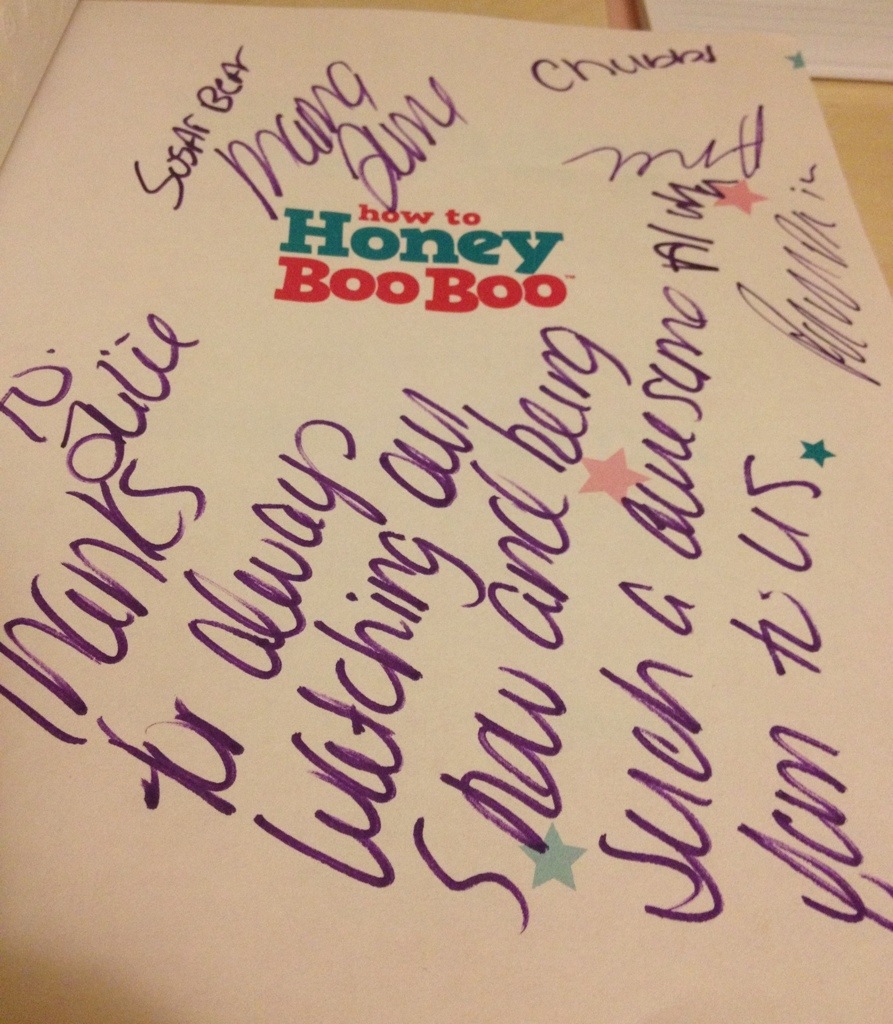 SUGAR BEAR
Mama
June
Chubbs
how to
Honey
Boo Boo™
To
Julie
Thanks
for always
watching our
show and being
Such a awesome
to us